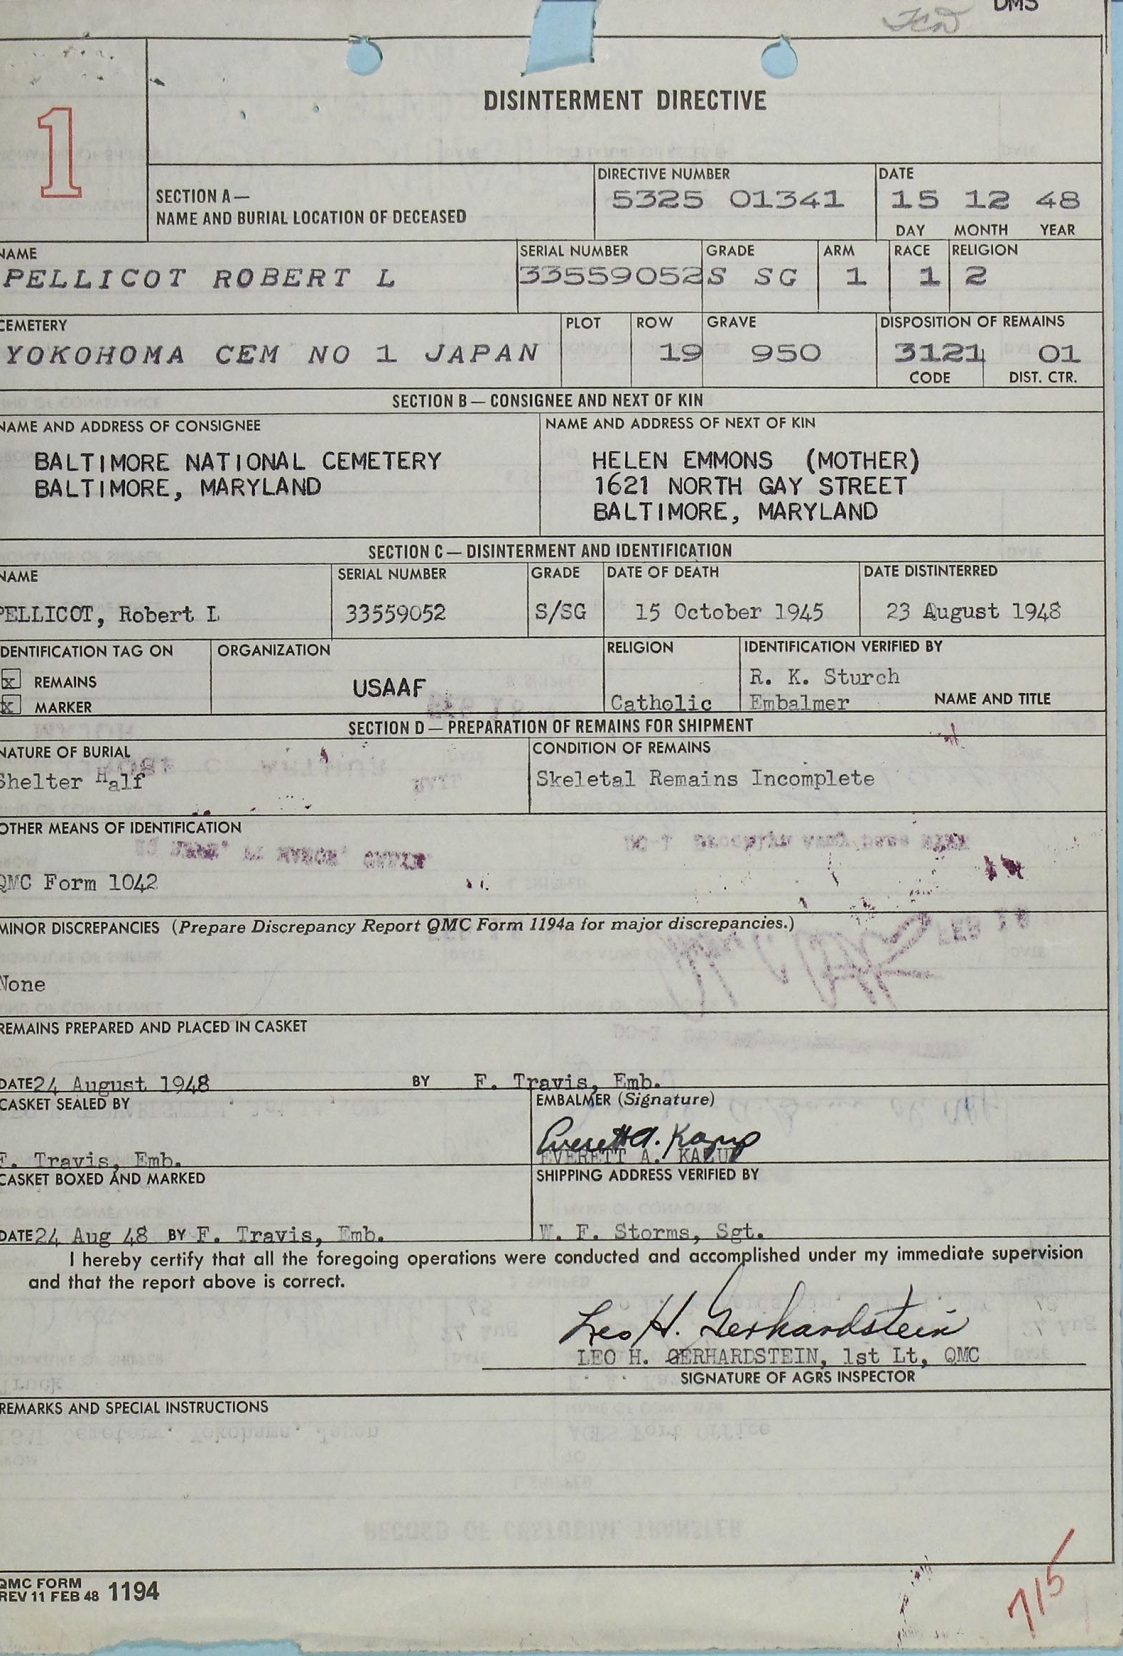 DMS
1
DISINTERMENT DIRECTIVE
SECTION A—
NAME AND BURIAL LOCATION OF DECEASED
DIRECTIVE NUMBER
5325 01341
DATE
15 12 48
DAY MONTH YEAR
NAME
PELLICOT ROBERT L
SERIAL NUMBER
33559052
GRADE
S SG
ARM
1
RACE
1
RELIGION
2
CEMETERY
YOKOHOMA CEM NO 1 JAPAN
PLOT
ROW
19
GRAVE
950
DISPOSITION OF REMAINS
3121 01
CODE DIST. CTR.
SECTION B — CONSIGNEE AND NEXT OF KIN
NAME AND ADDRESS OF CONSIGNEE
BALTIMORE NATIONAL CEMETERY
BALTIMORE, MARYLAND
NAME AND ADDRESS OF NEXT OF KIN
HELEN EMMONS (MOTHER)
1621 NORTH GAY STREET
BALTIMORE, MARYLAND
SECTION C — DISINTERMENT AND IDENTIFICATION
NAME
PELLICOT, Robert L
SERIAL NUMBER
33559052
GRADE
S/SG
DATE OF DEATH
15 October 1945
DATE DISTINTERRED
23 August 1948
IDENTIFICATION TAG ON
x REMAINS
x MARKER
ORGANIZATION
USAAF
RELIGION
Catholic
IDENTIFICATION VERIFIED BY
R. K. Sturch
Embalmer NAME AND TITLE
SECTION D — PREPARATION OF REMAINS FOR SHIPMENT
NATURE OF BURIAL
Shelter Half
CONDITION OF REMAINS
Skeletal Remains Incomplete
OTHER MEANS OF IDENTIFICATION
QMC Form 1042
MINOR DISCREPANCIES (Prepare Discrepancy Report QMC Form 1194a for major discrepancies.)
None
REMAINS PREPARED AND PLACED IN CASKET
DATE 24 August 1948 BY F. Travis, Emb.
CASKET SEALED BY
F. Travis, Emb.
EMBALMER (Signature)
Everett A. Kapup
EVERETT A.
CASKET BOXED AND MARKED
DATE 24 Aug 48 BY F. Travis, Emb.
SHIPPING ADDRESS VERIFIED BY
W. F. Storms, Sgt.
I hereby certify that all the foregoing operations were conducted and accomplished under my immediate supervision
and that the report above is correct.
Leo H. Gerhardstein
LEO H. GERHARDSTEIN, 1st Lt, QMC
SIGNATURE OF AGRS INSPECTOR
REMARKS AND SPECIAL INSTRUCTIONS
QMC FORM
REV 11 FEB 48 1194
715